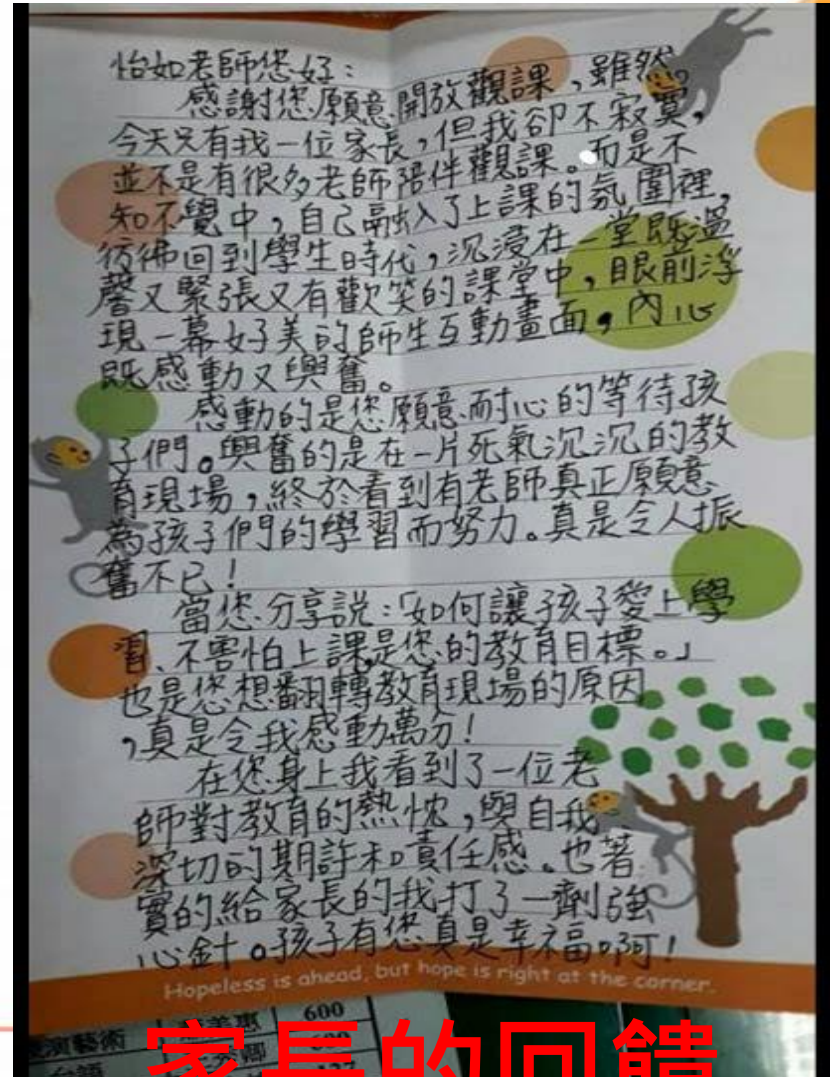 怡如老師您好：
感謝您願意開放觀課，雖然
今天只有我一位家長，但我卻不寂寞，
並不是有很多老師陪伴觀課。而是不
知不覺中，自己融入了上課的氛圍裡，
彷彿回到學生時代，沉浸在一堂既溫
馨又緊張又有歡笑的課堂中，眼前浮
現一幕好美的師生互動畫面，內心
既感動又興奮。
感動的是您願意耐心的等待孩
子們。興奮的是在一片死氣沉沉的教
育現場，終於看到有老師真正願意
為孩子們的學習而努力。真是令人振
奮不已！
當您分享說：「如何讓孩子愛上學
習、不害怕上課是您的教育目標。」
也是您想翻轉教育現場的原因
，真是令我感動萬分！
在您身上我看到了一位老
師對教育的熱忱，與自我
深切的期許和責任感。也著
實的給家長的我打了一劑強
心針。孩子有您真是幸福啊！
Hopeless is ahead, but hope is right at the corner.
演藝術 美惠 600
家長的回饋